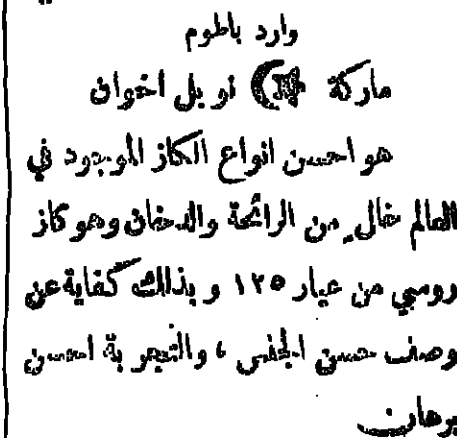 وارد باطوم
ماركة نوبل اخوان
هو احسن انواع الكاز الموجود في
العالم خال من الرائحة والدخان وهو كاز
روسي من عيار ١٢٥ و بذلك كفاية عن
وصف حسن الجنس ، والتجربة احسن
برهان